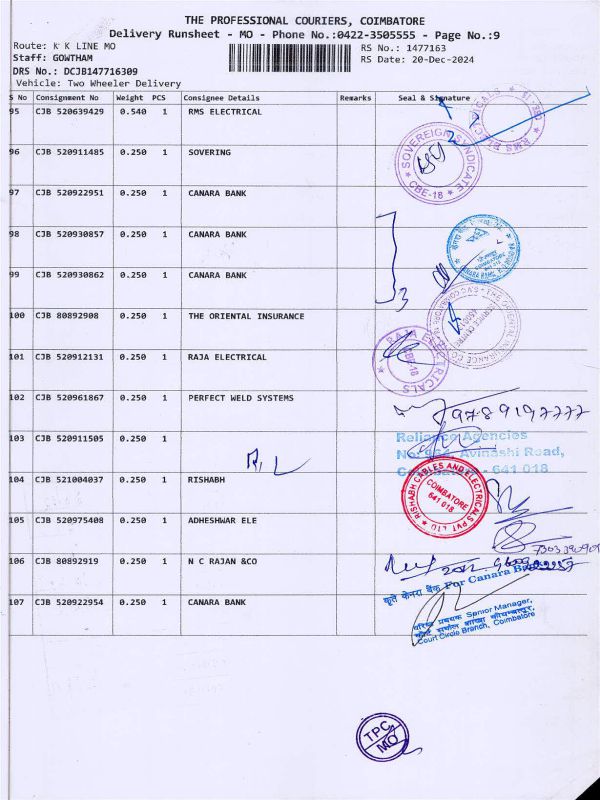 THE PROFESSIONAL COURIERS, COIMBATORE
Delivery Runsheet - MO - Phone No.:0422-3505555 - Page No.:9
Route: K K LINE MO
RS No.: 1477163
Staff: GOWTHAM
RS Date: 20-Dec-2024
DRS No.: DCJB147716309
Vehicle: Two Wheeler Delivery
S No Consignment No Weight PCS Consignee Details Remarks Seal & Signature
95 CJB 520639429 0.540 1 RMS ELECTRICAL
96 CJB 520911485 0.250 1 SOVERING
SOVEREIGN SYNDICATE
CBE-18
97 CJB 520922951 0.250 1 CANARA BANK
98 CJB 520930857 0.250 1 CANARA BANK
99 CJB 520930862 0.250 1 CANARA BANK
3
100 CJB 80892908 0.250 1 THE ORIENTAL INSURANCE
101 CJB 520912131 0.250 1 RAJA ELECTRICAL
RAJA ELECTRICALS
CBE-18
102 CJB 520961867 0.250 1 PERFECT WELD SYSTEMS
9789197777
103 CJB 520911505 0.250 1
R, L
Reliance Agencies
Avinashi Road,
641 018
104 CJB 521004037 0.250 1 RISHABH
RISHABH CABLES AND ELECTRICALS PVT LTD
COIMBATORE
641 018
105 CJB 520975408 0.250 1 ADHESHWAR ELE
106 CJB 80892919 0.250 1 N C RAJAN &CO
107 CJB 520922954 0.250 1 CANARA BANK
कृते केनरा बैंक For Canara Bank
Senior Manager,
Court Circle Branch, Coimbatore
TPC
MO